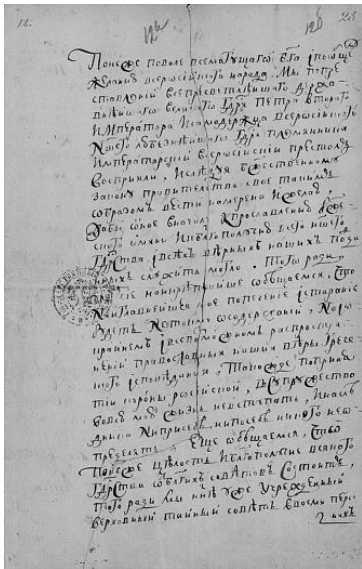 12. 126 126 28
Понеже поволе всемогущагѡ Бга іпоѡбще
желанию всеросиіского народа, Мы попре
ставлениі всепресветлеишаго держа
внѣишаго великаго Гдря Петра второго
Императора исамодержца всеросиіского
Ншего любезнѣишаго Гдря племянника
Императорскиі всеросиіскиі престолъ
восприяли, ислѣдуя бжественному
закону правителство свое такимъ
ѡбразомъ вести намерена ижелаю,
дабы ѡное вначалѣ кпрославлению бже
ского имяни иблагополучию всего ншего
гдрства івсѣхъ вѣрныхъ нашихъ подда
нныхъ служить могло. Того ради
чрезъ сие наикрепчаише ѡбещаемся, что
наиглавнеишее мое попечение істарание
будетъ нетокмо ѡсодержаниі, Ноі ѡ
краинемъ івсевозможномъ распростра
нениі православныя нашия вѣры грече
ского ісповѣдания, Такожде поприня
тиі короны росиіскои, всупружество
вовсю мою жизнь невступать, інаслѣ
дника ниприсебѣ нипосебѣ никого неѡ
пределять. Еще ѡбещаемся, что
понеже цѣлость иблагополучие всякого
гдрства ѡтблагихъ совѣтовъ состоитъ,
того ради мы ннѣ уже учрежденныі
верховныі таиныі совѣтъ ввосми пер